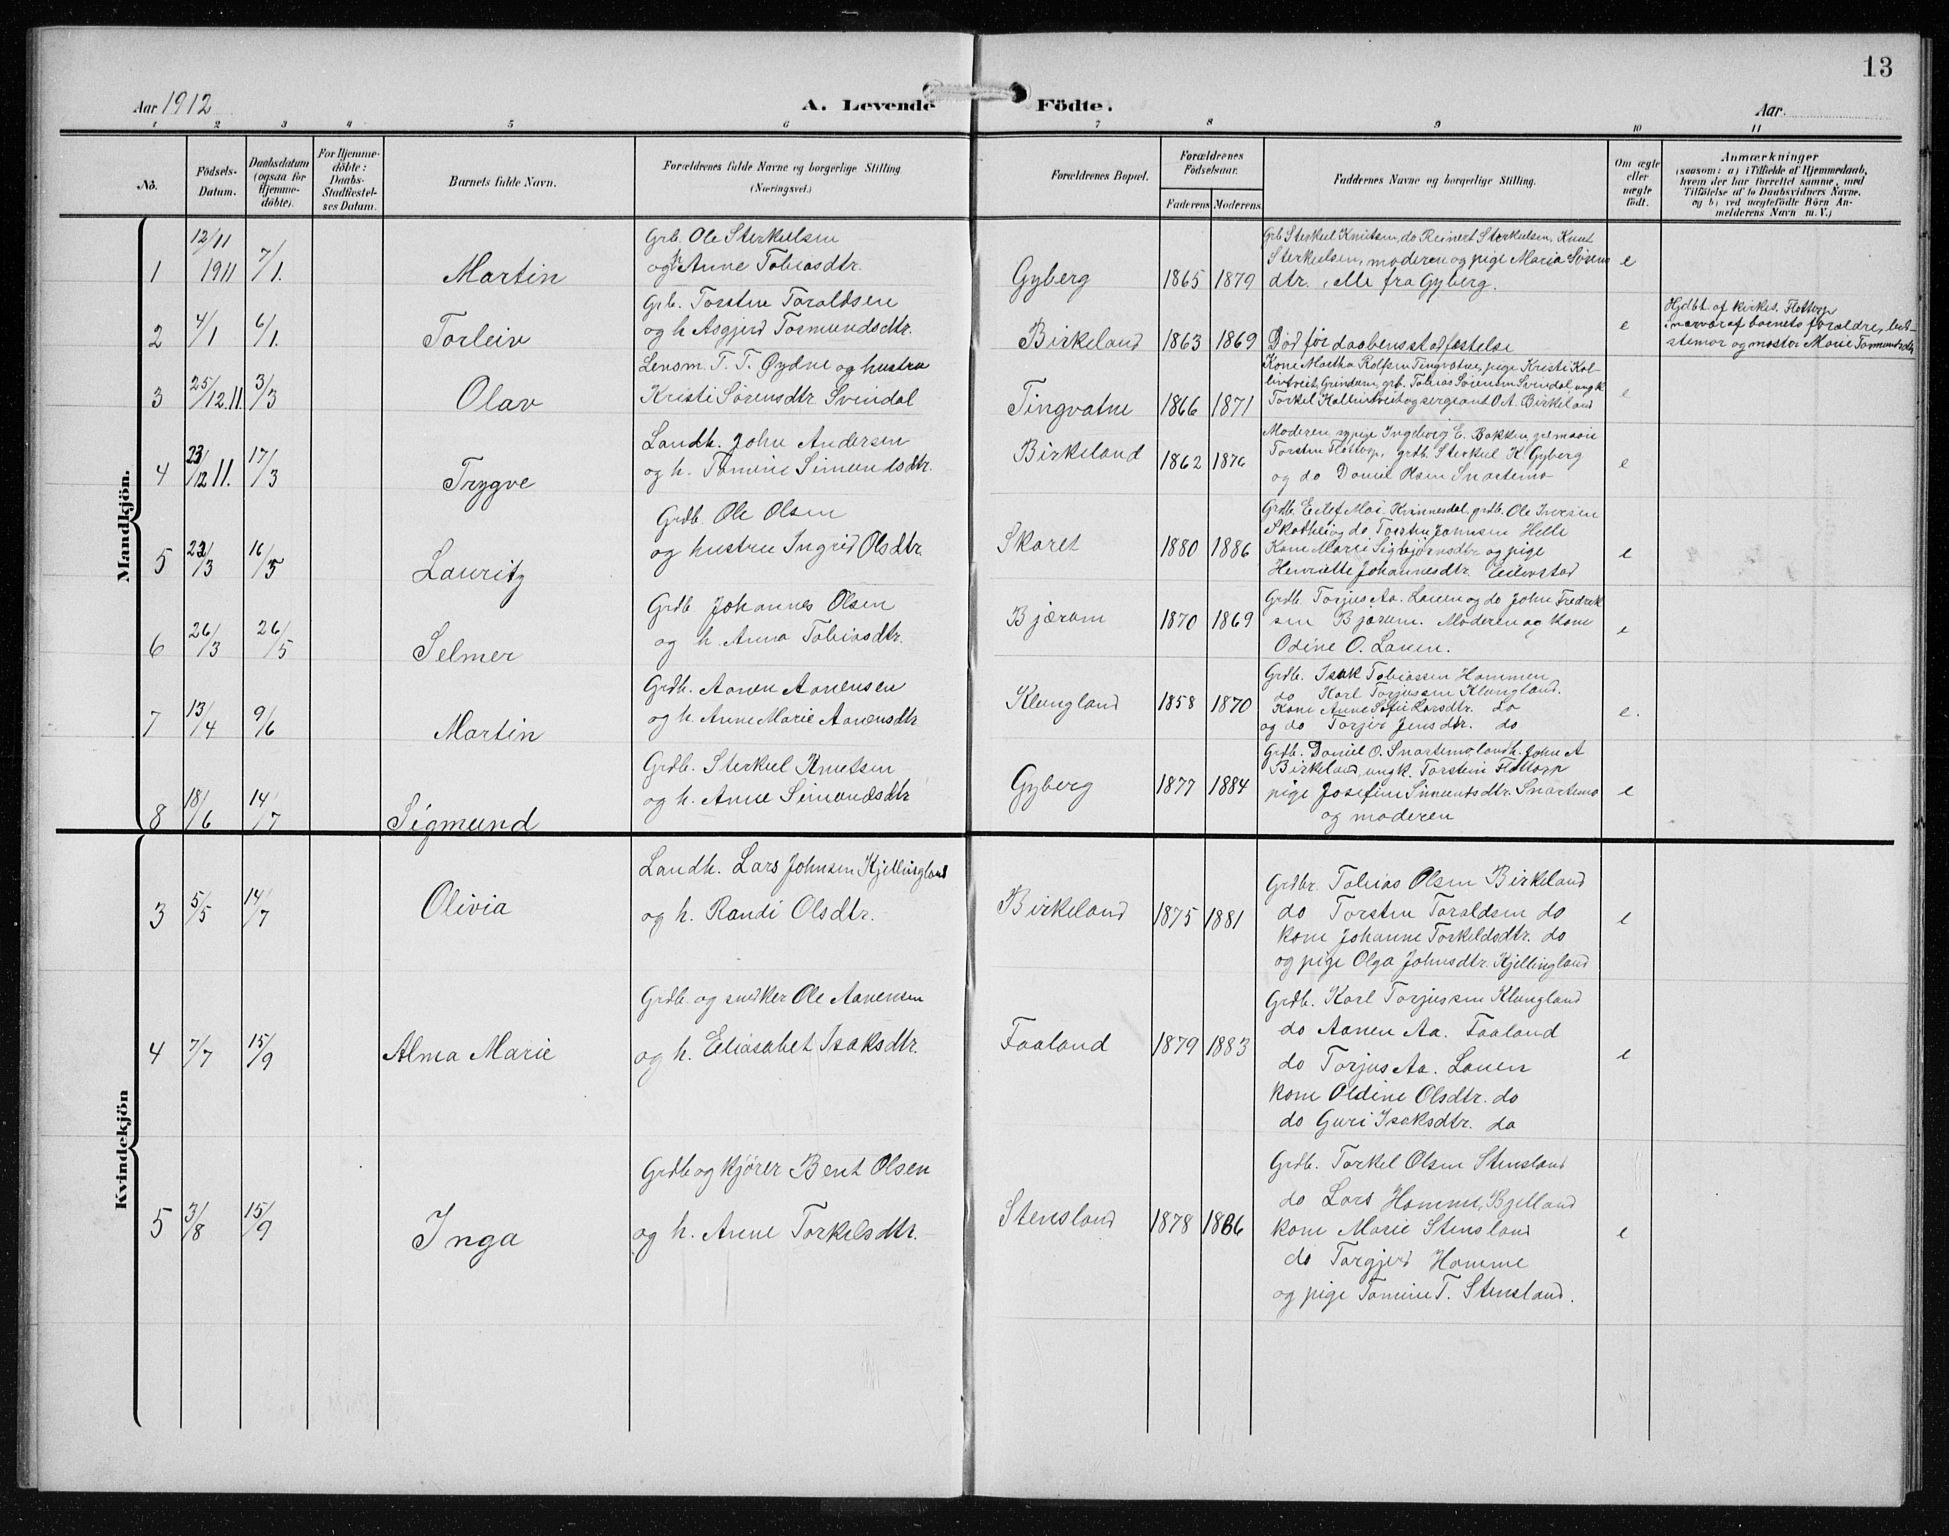 13
Aar 1912
A. Levende Födte.
Aar
1 2 3 4 5 6 7 8 9 10 11
No.
Födsels-
Datum.
Daabsdatum
(ogsaa for
Hjemme-
döbte).
For Hjemme-
döbte:
Daabs-
Stadfæstel-
ses Datum.
Barnets fulde Navn.
Forældrenes fulde Navne og borgerlige Stilling
(Næringsvei.)
Forældrenes Bopæl.
Forældrenes
Födselsaar.
Faderens Moderens
Faddernes Navne og borgerlige Stilling.
Om ægte
eller
uægte
födt.
Anmærkninger
(saasom: a) i Tilfælde af Hjemmedaab,
hvem der har forrettet samme, med
Tilföielse af to Daabsvidners Navne,
og b) ved uægtefödte Börn An-
melderens Navn m. V.)
Mandkjön.
1
12/11
1911
7/1.
Martin
Grb. Ole Sterkulsen
og h. Anne Tobiasdtr.
Gyberg
1865 1879
Grb Sterkul Knutsen, do Reinert Sterkulsen, Knut
Sterkulsen, moderen og pige Maria Sørens
dtr., alle fra Gyberg.
e
2
4/1
6/1.
Torleiv
Grb. Torsten Toraldsen
og h. Asgjerd Tormundsdtr.
Birkeland
1863 1869
Død før daabens stadfestelse
e
Hjdbt af kirkes. Flottorp
i nærvær af barnets forældre, bed-
stemor og moster Marie Tormundsdtr
3
25/12 11.
3/3
Olav
Lensm. T. T. Øydne og hustru
Kristi Sørensdtr Svindal
Tingvatne
1866 1871
Kone Martha Rolfsen Tingvatne, pige Kristi Kol-
Grindum, grb. Tobias Sørensen Svindal ungk.
Torkel og sergeant O. A. Birkeland
e
4
23/12 11.
17/3
Trygve
Landh. John Andersen
og h. Tomine Simundsdtr.
Birkeland
1862 1876
Moderen, sypige Ingeborg E. Bakken,
Torsten Flottorp, grdb. Sterkul K. Gyberg
og do Daniel Olsen Snartemo
e
5
23/3
16/5
Lauritz
Grdb. Ole Olsen
og hustru Ingrid Olsdtr.
Skaret
1880 1886
Grdb. Eilef Moi Kvinnesdal, grdb. Ole Iversen
Skothei og do Torsten Johnsen Helle
Kone Marie Sigbjørnsdtr og pige
Henriette Johannesdtr. Eilevstad
e
6
26/3
26/5
Selmer
Grdb Johannes Olsen
og h. Anna Tobiasdtr.
Bjærum
1870 1869
Grdb. Torjus Aa. Lauen og do John Fredrik
sen Bjærum. Moderen og kone
Odine O. Lauen.
e
7
13/4
9/6
Martin
Grdb. Aanen Aanensen
og h. Anne Marie Aanensdtr
Klungland
1858 1870
Grdb. Isak Tobiassen Hommen
do Karl Torjussen Klungland.
Kone Anne Sofie Larsdtr. do
og do Torjer Jensdtr. do
e.
8
18/6
14/7
Sigmund
Grdb. Sterkul Knutsen
og h. Anne Simundsdtr
Gyberg
1877 1884
Grdb. Daniel O. Snartemo, landh. John A
Birkeland, ungk. Torstein Flottorp
pige Josefine Simundsdtr. Snartemo
og moderen
e
Kvindekjön
3
5/5
14/7
Olivia
Landh. Lars Johnsen Kjellingland
og h. Randi Olsdtr.
Birkeland
1875 1881
Grdbr. Tobias Olsen Birkeland
do Torsten Toraldsen do
kone Johanne Torkeldsdtr. do
og pige Olga Johnsdtr. Kjellingland
e
4
7/7
15/9
Alma Marie
Grdb. og snedker Ole Aanensen
og h. Eliasabet Isaksdtr.
Faaland
1879 1883
Grdb. Karl Torjussen Klungland
do Aanen Aa. Faaland
do Torjus Aa. Lauen
kone Oldine Olsdtr. do
do Guri Isaksdtr. do
e
5
3/8
15/9
Inga
Grdb og kjører Bent Olsen
og h. Anne Torkelsdtr.
Stensland
1878 1866
Grdb. Torkel Olsen Stensland
do Lars Homme, Bjelland
kone Marie Stensland
do Torgjerd Homme
og pige Tomine T. Stensland.
e